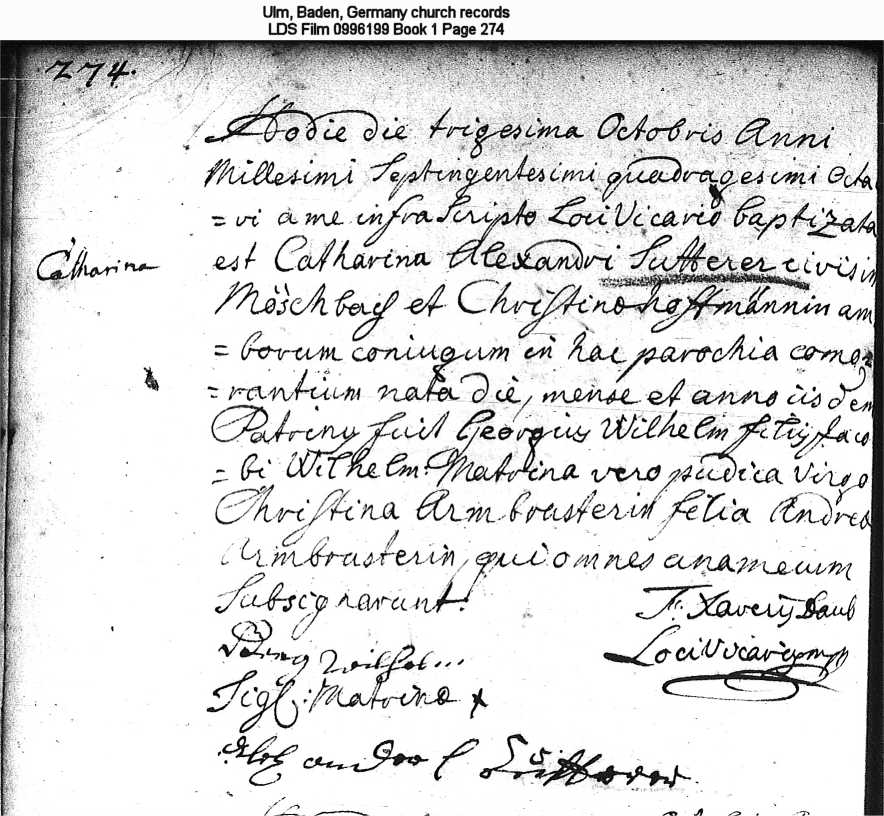 Ulm, Baden, Germany church records
LDS Film 0996199 Book 1 Page 274
274.
Hodie die trigesima Octobris Anni
Millesimi Septingentesimi quadragesimi Octa
=vi a me infra Scripto Loci Vicario baptizata
Catharina
est Catharina Alexandri Sutterer civis in
Möschbach et Christinæ hoffmännin am
=borum coniugum in hac parochia como
=rantium nata die, mense et anno iisdem
Patrinus fuit Georgius Wilhelm filius Jaco
=bi Wilhelm. Matrina vero pudica Virgo
Christina Armbrusterin filia Andreæ
Armbrusterin, qui omnes una mecum
Subsignarunt.
F: Xaverius Daub
Loci Vicarius
Sigl: Matrinæ x